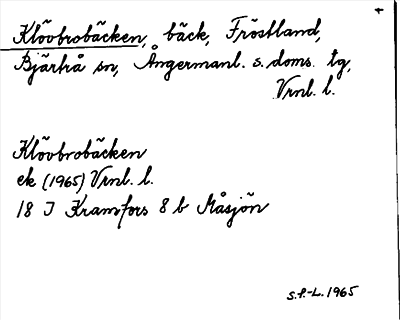 Klövbrobäcken, bäck, Fröstland,
Bjärtrå sn, Ångermanl. s. doms. tg,
Vrnl. l.
Klövbrobäcken
ek (1965) Vrnl. l.
18 J Kramfors 8 b Måsjön
S.F.-L. 1965